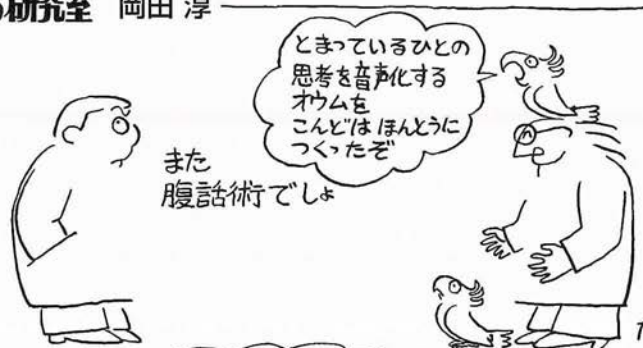 の研究室 岡田 淳
とまっているひとの
思考を音声化する
オウムを
こんどは ほんとうに
つくったぞ
また
腹話術でしょ